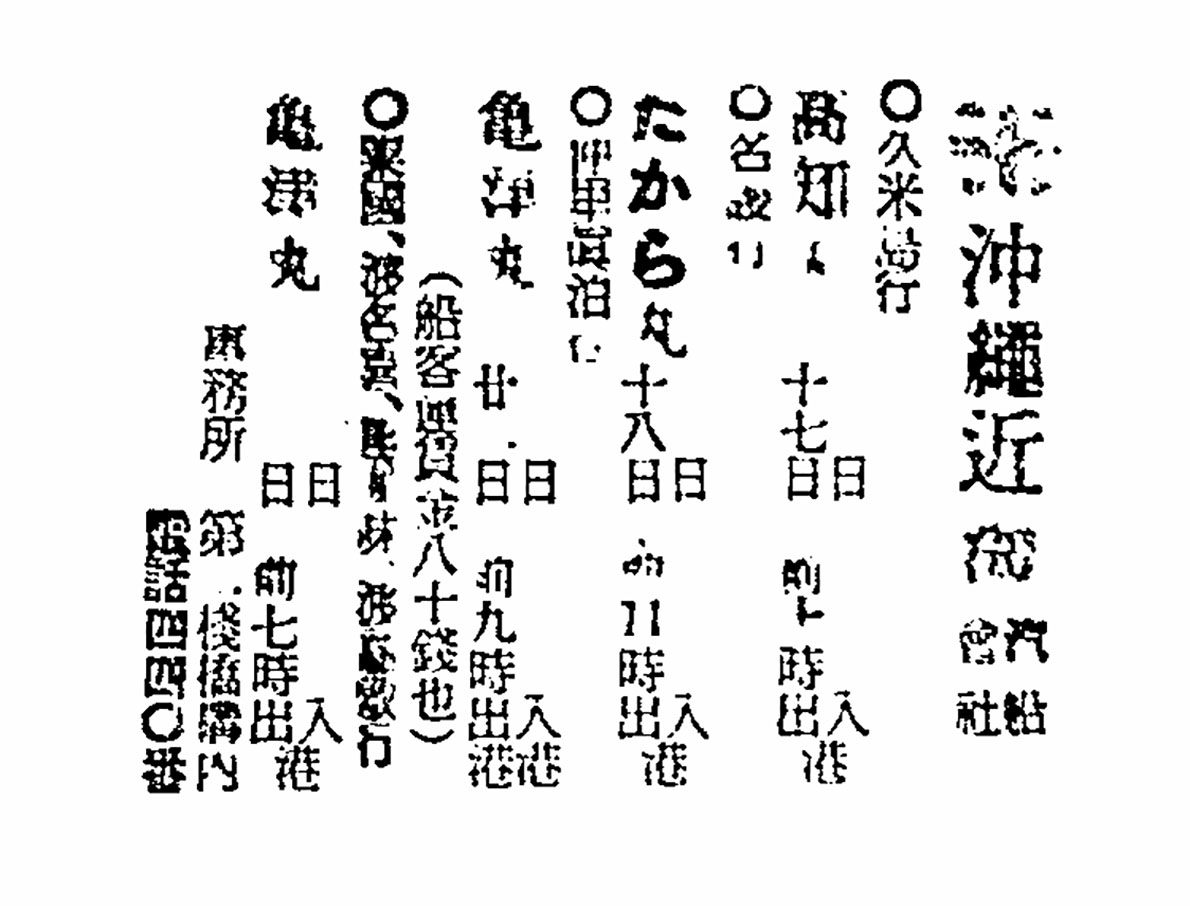 沖繩近海汽船會社
〇久米島行
高知丸 十七日 日前 時出港 入港
〇名護行
たから丸 十八日 日前11時出港 入港
〇仲里眞泊行
亀津丸 廿 日 日前九時出港 入港
(船客運賃金八十錢也)
〇粟國、渡名喜、座間味、渡嘉敷行
亀津丸 日 日前七時出港 入港
事務所 第 棧橋構內
電話四四〇番